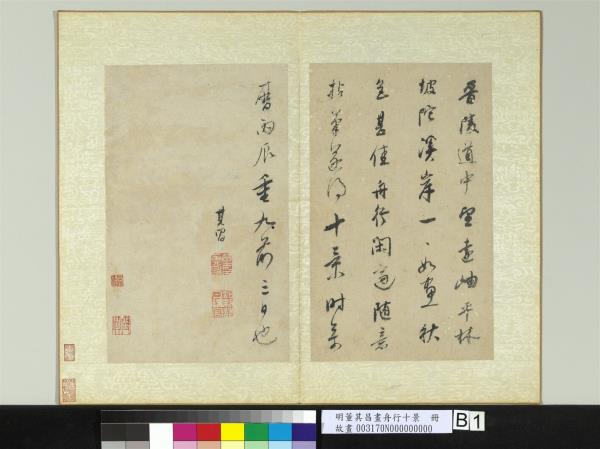 晉陵道中望遠岫平林
坡陀溪岸一、如畫秋
色甚佳舟行閑適隨意
拈筆遂得十景時萬
曆丙辰重九前三日也
其昌
明董其昌畫舟行十景 冊
故畫 003170N000000000
B 1